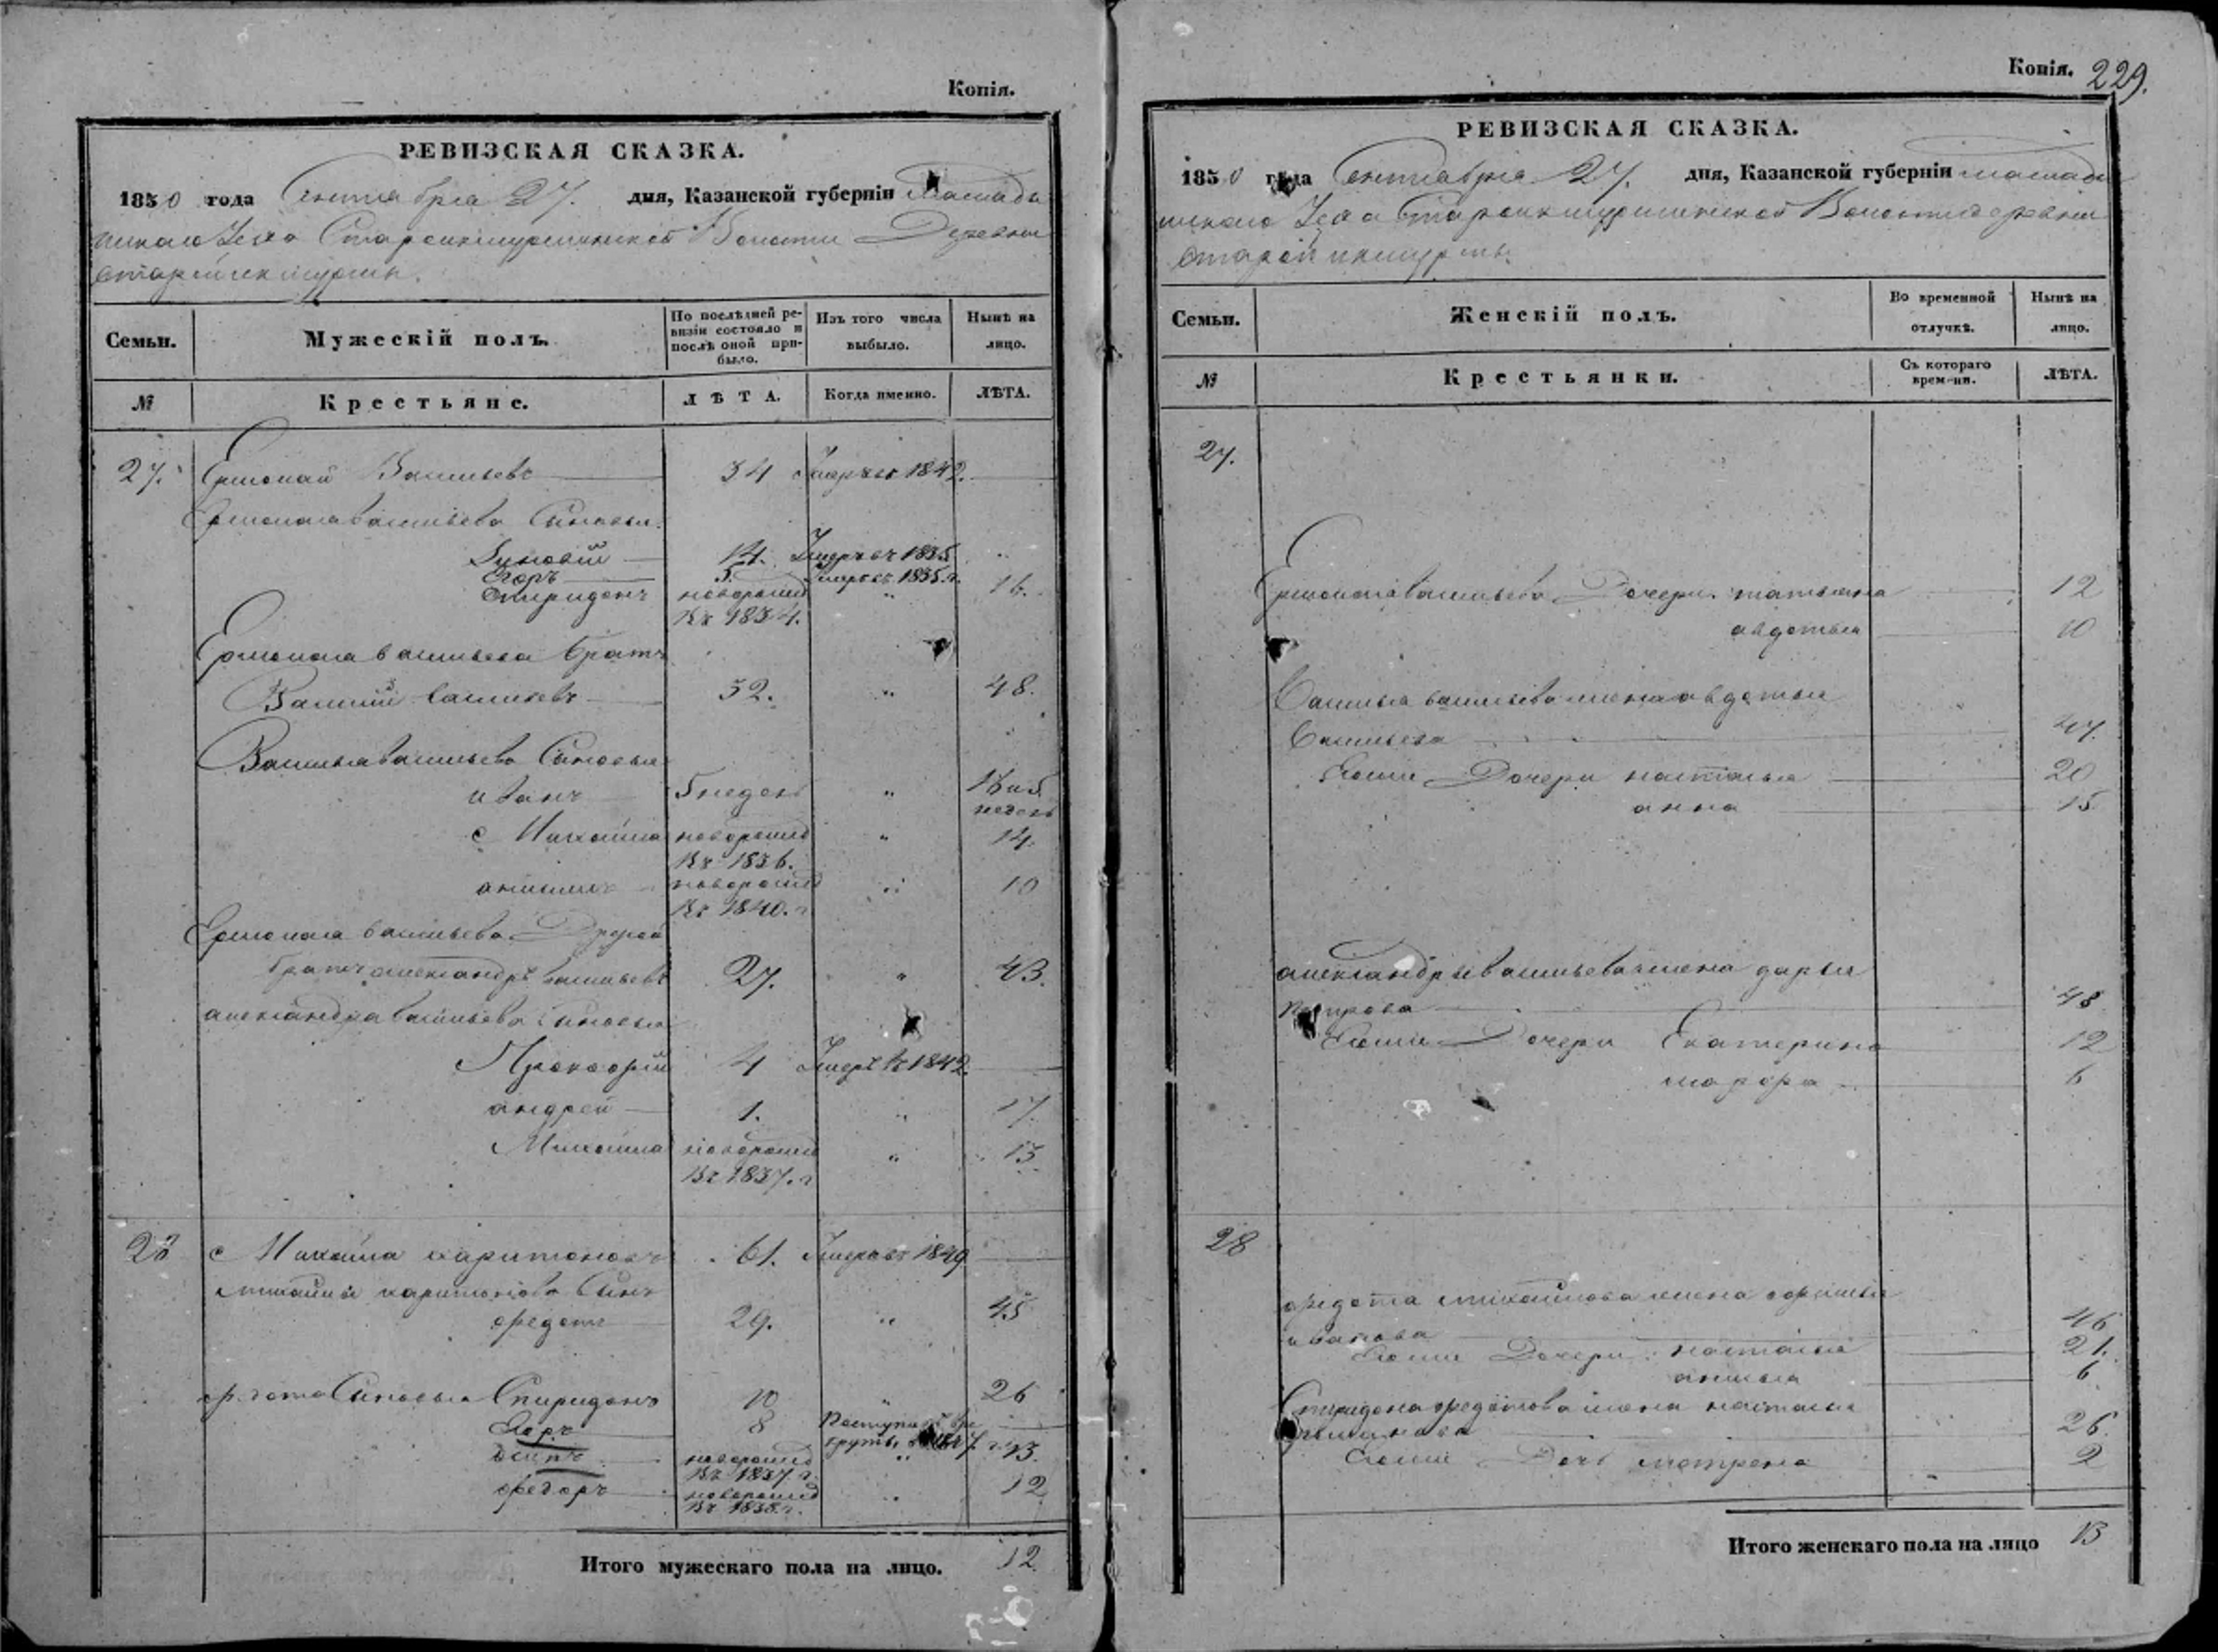 Копія.
РЕВИЗСКАЯ СКАЗКА.
1850 года Сентября 27. дня, Казанской губерніи
Уезда Волости Деревни
Семьи.
Мужескій полъ.
По послѣдней ре-
визіи состояло и
послѣ оной при-
было.
Изъ того числа
выбыло.
Нынѣ на
лицо.
№
Крестьяне.
ЛѢТА.
Когда именно.
ЛѢТА.
27. Ермолай Васильевъ 34 Умеръ въ 1842.
Ермолая Васильева Сыновья
Зиновій 14. Умеръ въ 1835
Егоръ 5. Умеръ въ 1835. г.
Спиридонъ новорожд " 16.
Въ 1834.
Ермолая Васильева братъ
Василій Васильевъ 32. " 48.
Василья Васильева Сыновья
иванъ 5 недель " 16 и 5
недель
Михайла новорожд " 14.
Въ 1836.
новорожд " 10
Въ 1840. г
Ермолая Васильева Другой
братъ александръ Васильевъ 27. " 43.
александра Васильева Сыновья
Прокофій 4 Умеръ въ 1842.
андрей 1. " 17.
Михайла новорожд " 13
Въ 1837. г
28 Михайла харитоновъ 61. Умеръ въ 1849
михайлы харитонова Сынъ
федотъ 29. " 45
Сыновья Спиридонъ 10 " 26
Егоръ 8 Поступилъ въ ре
круты
новорожд " 13.
Въ 1837. г.
федоръ новорожд " 12
Въ 1838. г.
Итого мужескаго пола на лицо. 12.
Копія. 229.
РЕВИЗСКАЯ СКАЗКА.
1850 года Сентября 27. дня, Казанской губерніи
Уезда Волости деревни
Семьи.
Женскій полъ.
Во временной
отлучкѣ.
Нынѣ на
лицо.
№
Крестьянки.
Съ котораго
времени.
ЛѢТА.
27.
Ермолая Васильева Дочери татьяна 12
авдотья 10
Василья васильева жена авдотья
Васильева 47.
Ихъ Дочери наталья 20
анна 15
александры васильева жена дарья
48
Дочери Екатерина 12
6
28
федота михайлова жена
иванова 46
Дочери наталья 21.
6
Спиридона федотова жена наталья
26.
Дочь матрена 2
Итого женскаго пола на лицо 13